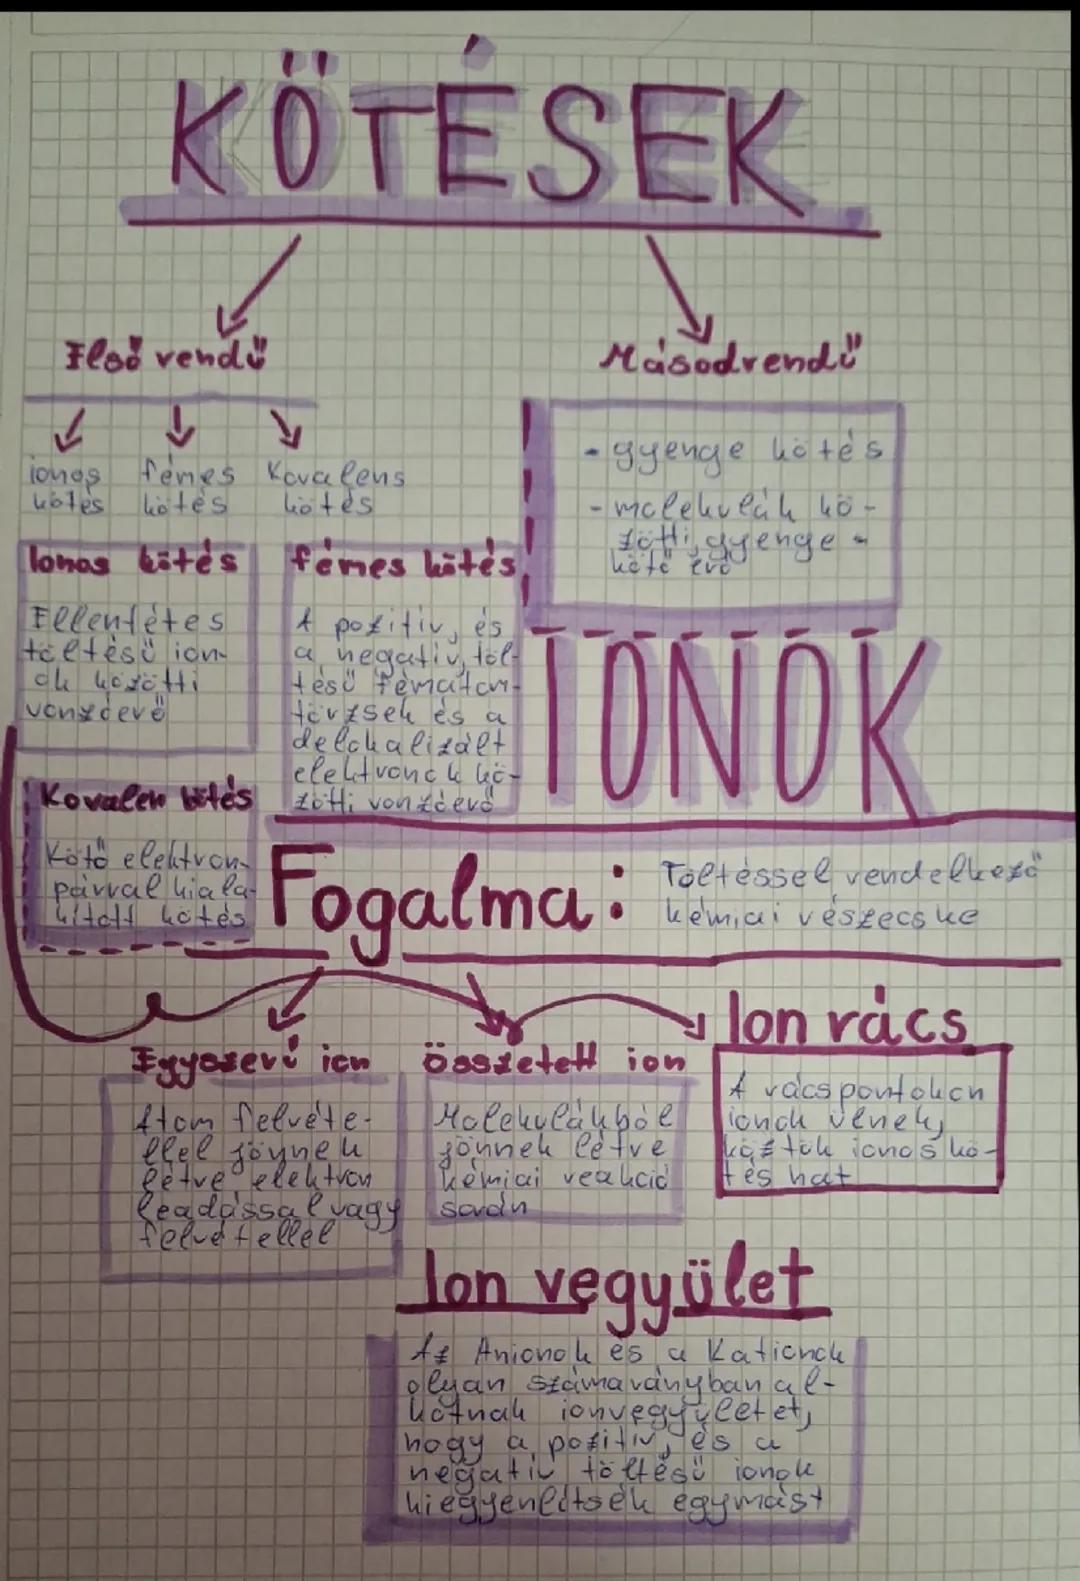 KÖTÉSEK
Első rendű
Másodrendű
ionos fémes Kovalens
kötés kötés kötés
- gyenge kötés
- molekulák kö-
zötti, gyenge -
kötő erő
Ionos kötés
Ellentétes
töltésű ion-
ok közötti
vonzóerő
fémes kötés
A pozitív, és
a negatív, töl-
tésű fématom-
törzsek és a
delokalizált
elektronok kö-
zötti vonzóerő
Kovalen kötés
Kötő elektron-
párral kiala-
kított kötés
IONOK
Fogalma:
Töltéssel rendelkező
kémiai részecske
Egyszerű ion
Atom felvéte-
llel jönnek
létre elektron
leadással vagy
felvétellel
összetett ion
Molekulákból
jönnek létre
kémiai reakció
során
Ion rács
A rácspontokon
ionok ülnek,
köztük ionos kö-
tés hat
Ion vegyület
Az Anionok és a Kationok
olyan számarányban al-
kotnak ionvegyületet,
hogy a pozitív, és a
negatív töltésű ionok
kiegyenlítsék egymást